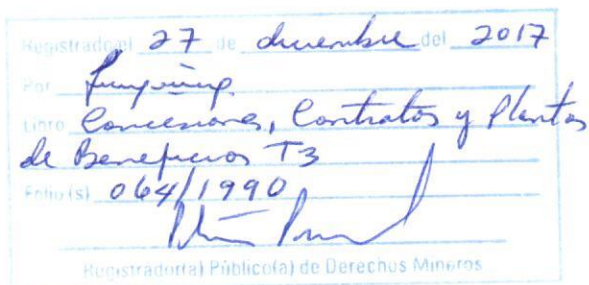 Registrado el 27 de diciembre del 2017
Por
Libro Concesiones, Contratos y Plantas
de Beneficios T3
Folio (s) 064/1990
Registrador(a) Público(a) de Derechos Mineros